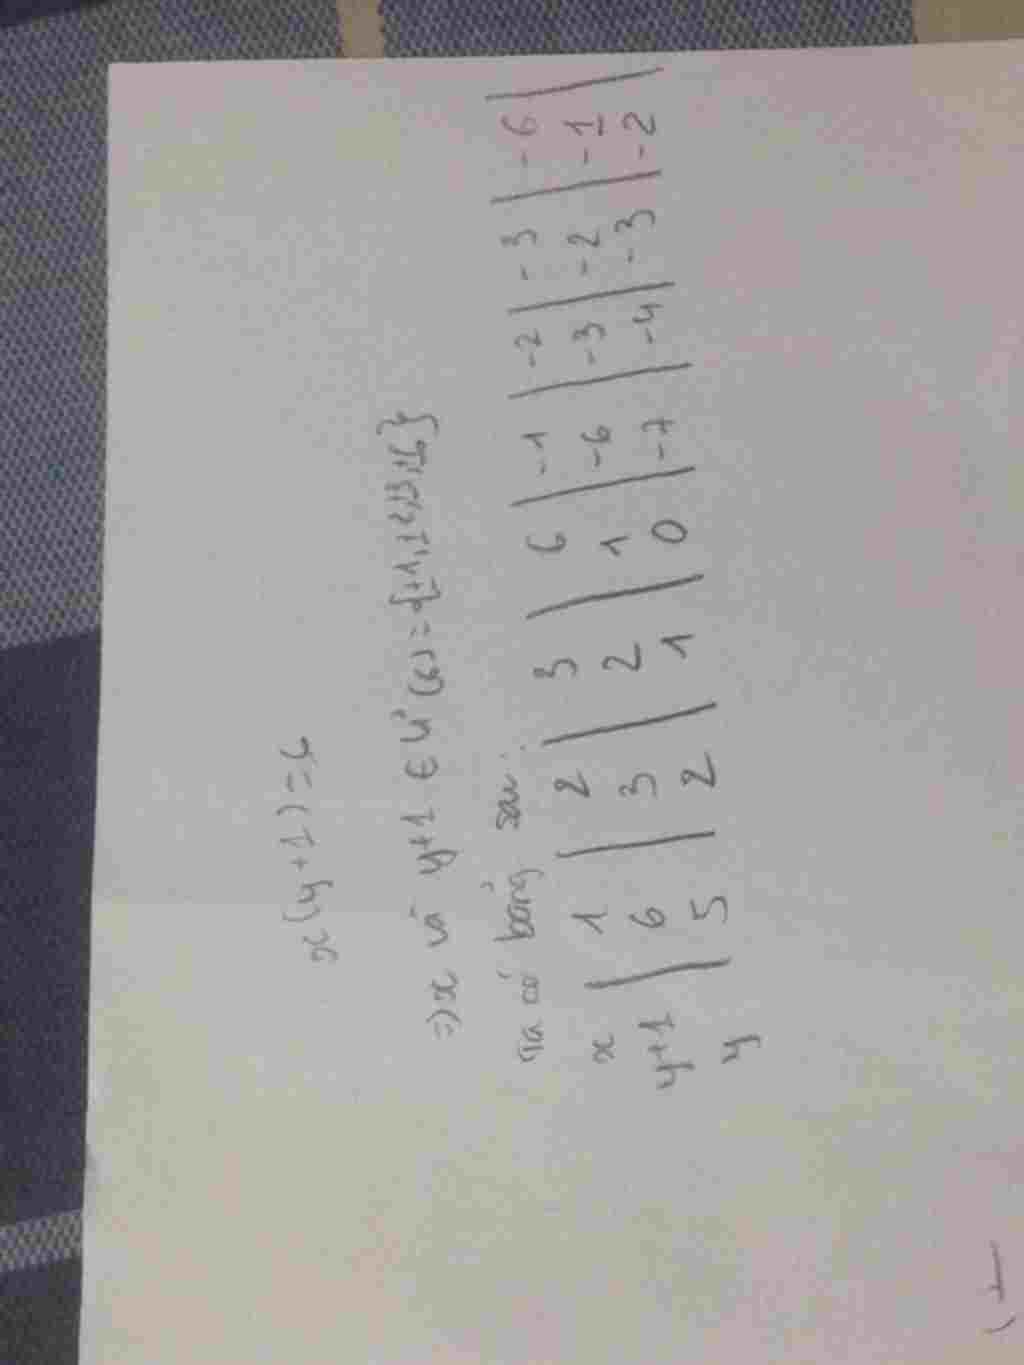 x(y+1)=6
=> x và y+1 ∈ Ư(6)={±1,±2,±3,±6}
Ta có bảng sau:
x | 1 | 2 | 3 | 6 | -1 | -2 | -3 | -6 |
y+1 | 6 | 3 | 2 | 1 | -6 | -3 | -2 | -1 |
y | 5 | 2 | 1 | 0 | -7 | -4 | -3 | -2 |